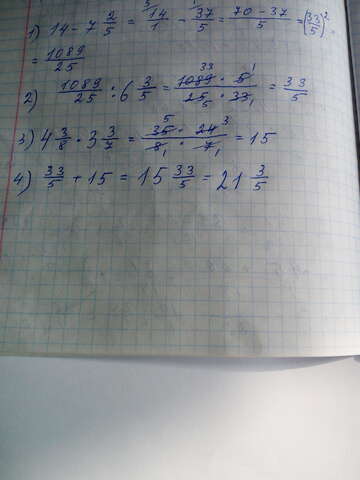 1) 14 - 7 2/5 = 14/1 - 37/5 = (70 - 37)/5 = (33/5)² =
= 1089/25
2) 1089/25 : 6 3/5 = (1089 · 5)/(25 · 33) = 33/5
3) 4 3/8 · 3 3/7 = (35 · 24)/(8 · 7) = 15
4) 33/5 + 15 = 15 33/5 = 21 3/5